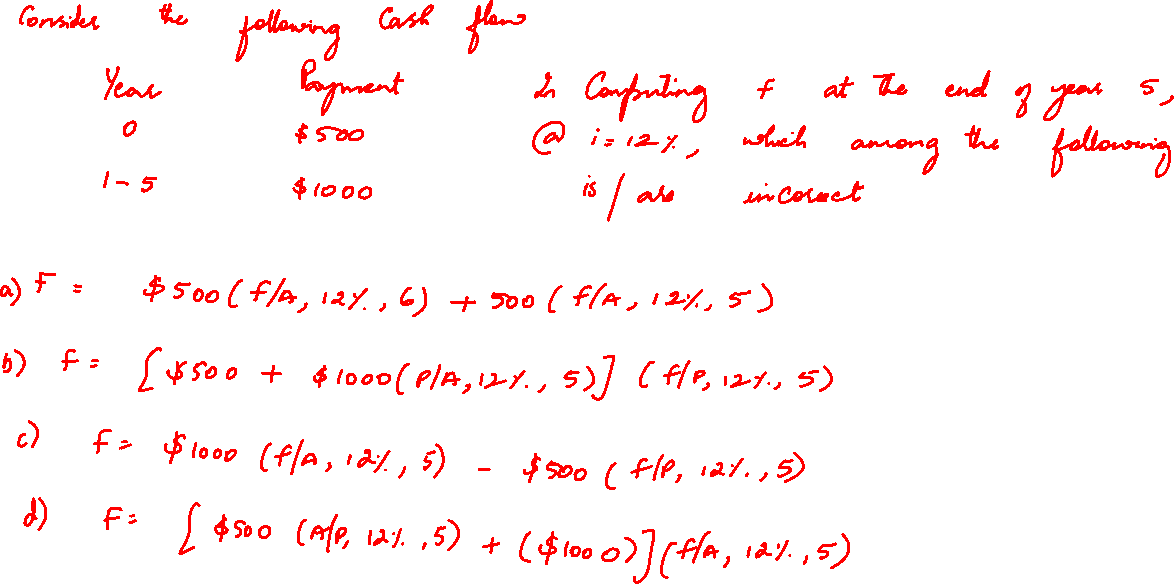 Consider the following Cash flow
Year Payment In Computing F at the end of year 5,
0 $500 @ i = 12%, which among the following
1-5 $1000 is/are incorect
a) F = $500 (F/A, 12%, 6) + 500 (F/A, 12%, 5)
b) F = [$500 + $1000 (P/A, 12%, 5)] (F/P, 12%, 5)
c) F = $1000 (F/A, 12%, 5) - $500 (F/P, 12%, 5)
d) F = [$500 (A/P, 12%, 5) + ($1000)] (F/A, 12%, 5)